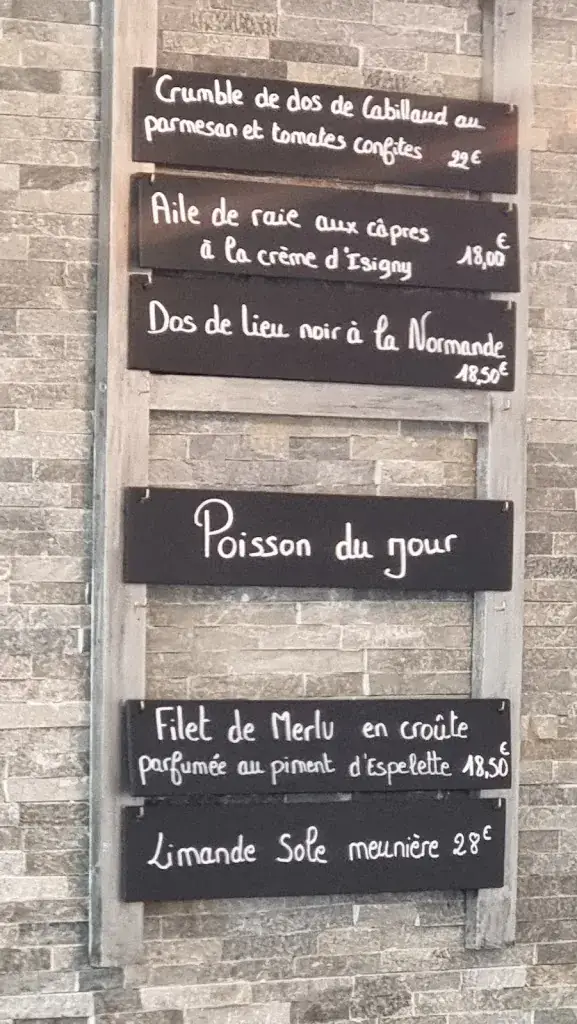 Crumble de dos de Cabillaud au
parmesan et tomates confites 22€
Aile de raie aux câpres
à la crème d'Isigny 18,00€
Dos de lieu noir à la Normande
18,50€
Poisson du jour
Filet de Merlu en croûte
parfumée au piment d'Espelette 18,50€
Limande Sole meunière 28€